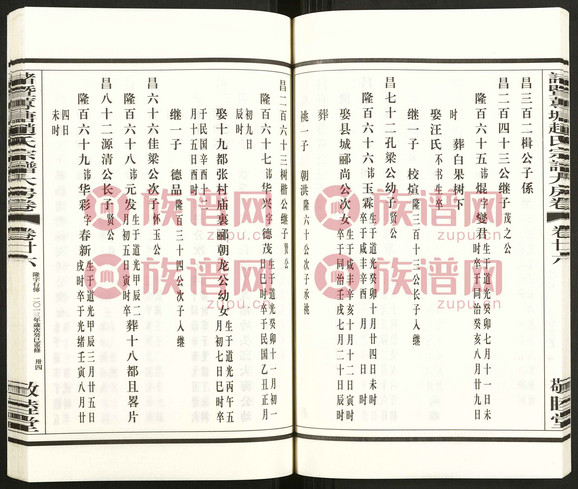 諸暨草塘趙氏宗譜大房卷
卷廿六
敬睦堂
昌三百二楫公子係
昌二百四十三公繼子茂之公
隆百六十五讳焜字燮君生于道光癸卯七月十一日未
时卒于同治癸亥八月九日
时 葬白果树下
娶汪氏不书生卒
继一子 校煊隆三百十三公长子入继
昌七十二孔梁公幼子贤公
隆百六十六讳玉霖生于道光癸卯十月廿四日未时
卒于咸丰辛酉 月 日 时
娶县城郦尚公次女生于咸丰辛亥十一月十二日寅时
卒于同治壬戌七月二十日辰时
葬
祧一子 朝洪隆六十公次子承祧
昌二百六十三树楷公继子贤公
隆百六十七讳华兴字德茂生于道光癸卯十一月初一
日巳时卒于民国乙丑正月
初九日
辰时
娶十九都张村庙裏郦朝龙公幼女生于道光丙午五
月初七日巳时卒
于民国辛酉十二
月十五日酉时
继一子 德品隆百三十四公次子入继
昌六十六佳梁公次子怀玉公
隆百六十八讳元发生于道光甲辰二
月初五日寅时卒 葬十八都且畧片
昌八十二源清公长子贤公
隆百六十九讳华彩字春新生于道光甲辰三月廿五日
戌时卒于光绪壬寅八月廿
四日
未时
諸暨草塘趙氏宗譜大房卷
卷廿六
隆字行传 二〇一三年歲次癸巳重修 卅四
敬睦堂
族谱网
族谱网
族谱网